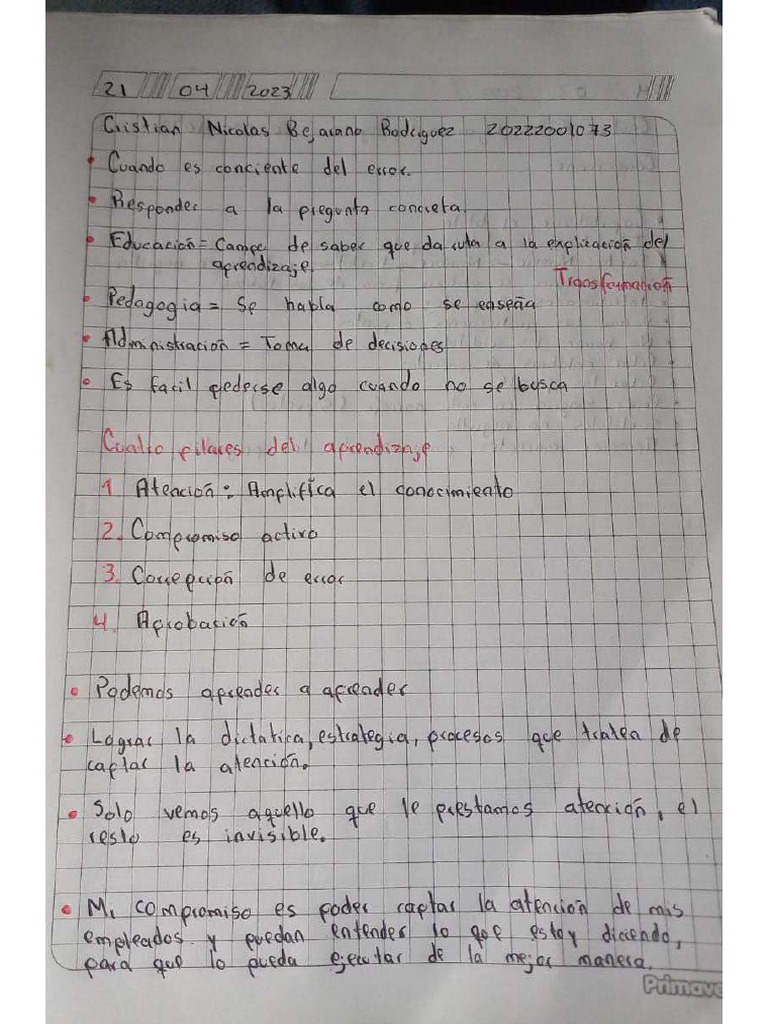 21 04 2023
Cristian Nicolas Bejarano Rodriguez 20222001073
• Cuando es conciente del error.
• Responder a la pregunta concreta.
• Educación = Campo de saber que da ruta a la explicación del
aprendizaje.
Transformación
• Pedagogia = Se habla como se enseña
• Administración = Toma de decisiones
• Es facil perderse algo cuando no se busca
Cuatro pilares del aprendizaje
1 Atención: Amplifica el conocimiento
2. Compromiso activo
3. Correpción de error
4. Aprobación
• Podemos aprender a aprender
• Lograr la dictatica, estrategia, procesos que traten de
captar la atención.
• Solo vemos aquello que le prestamos atención, el
resto es invisible.
• Mi compromiso es poder captar la atención de mis
empleados y puedan entender lo que estoy diciendo,
para que lo pueda ejecutar de la mejor manera.